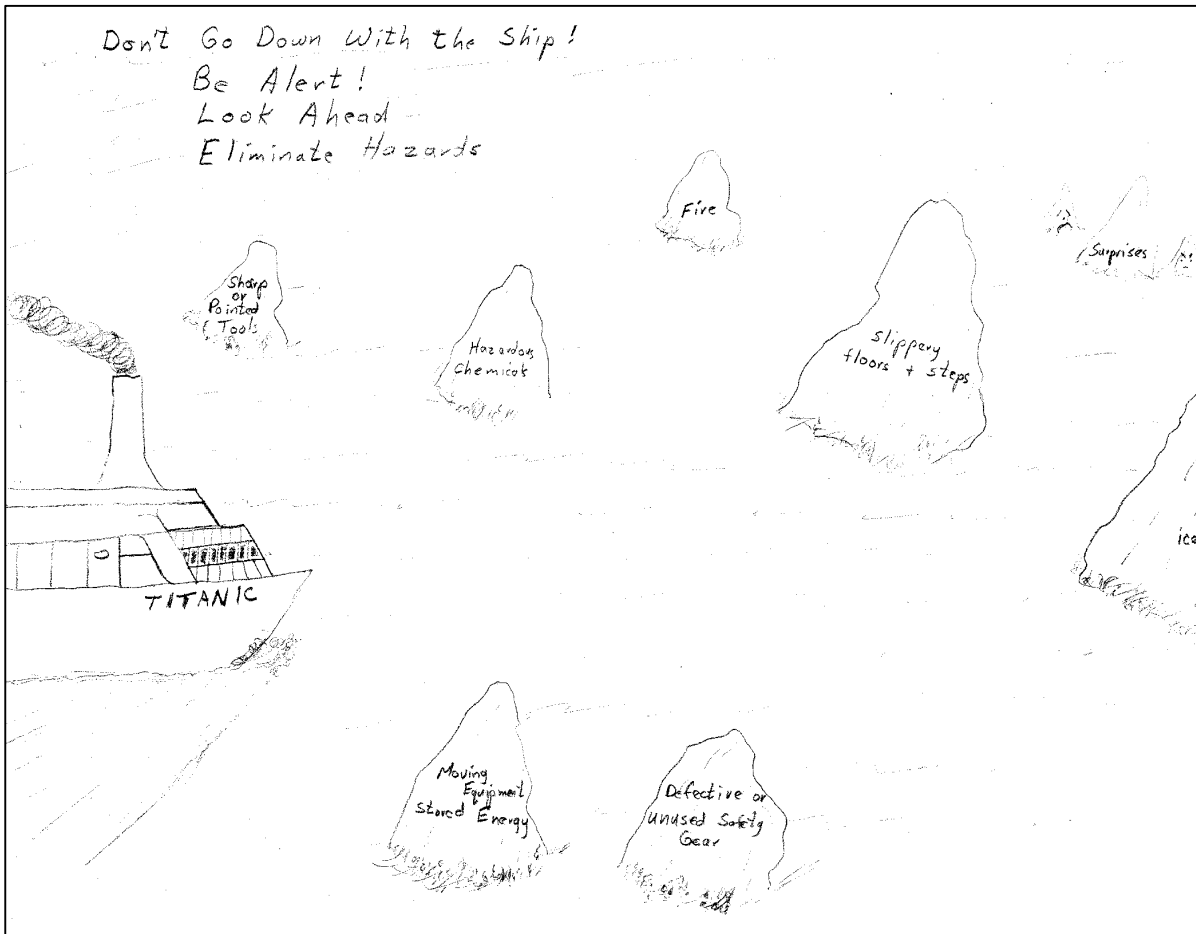 Don't Go Down With the Ship!
Be Alert!
Look Ahead
Eliminate Hazards
Fire
Surprises
Sharp
or
Pointed
Tools
Hazardous
Chemicals
Slippery
floors + steps
ice
TITANIC
Moving
Equipment
Stored Energy
Defective or
Unused Safety
Gear